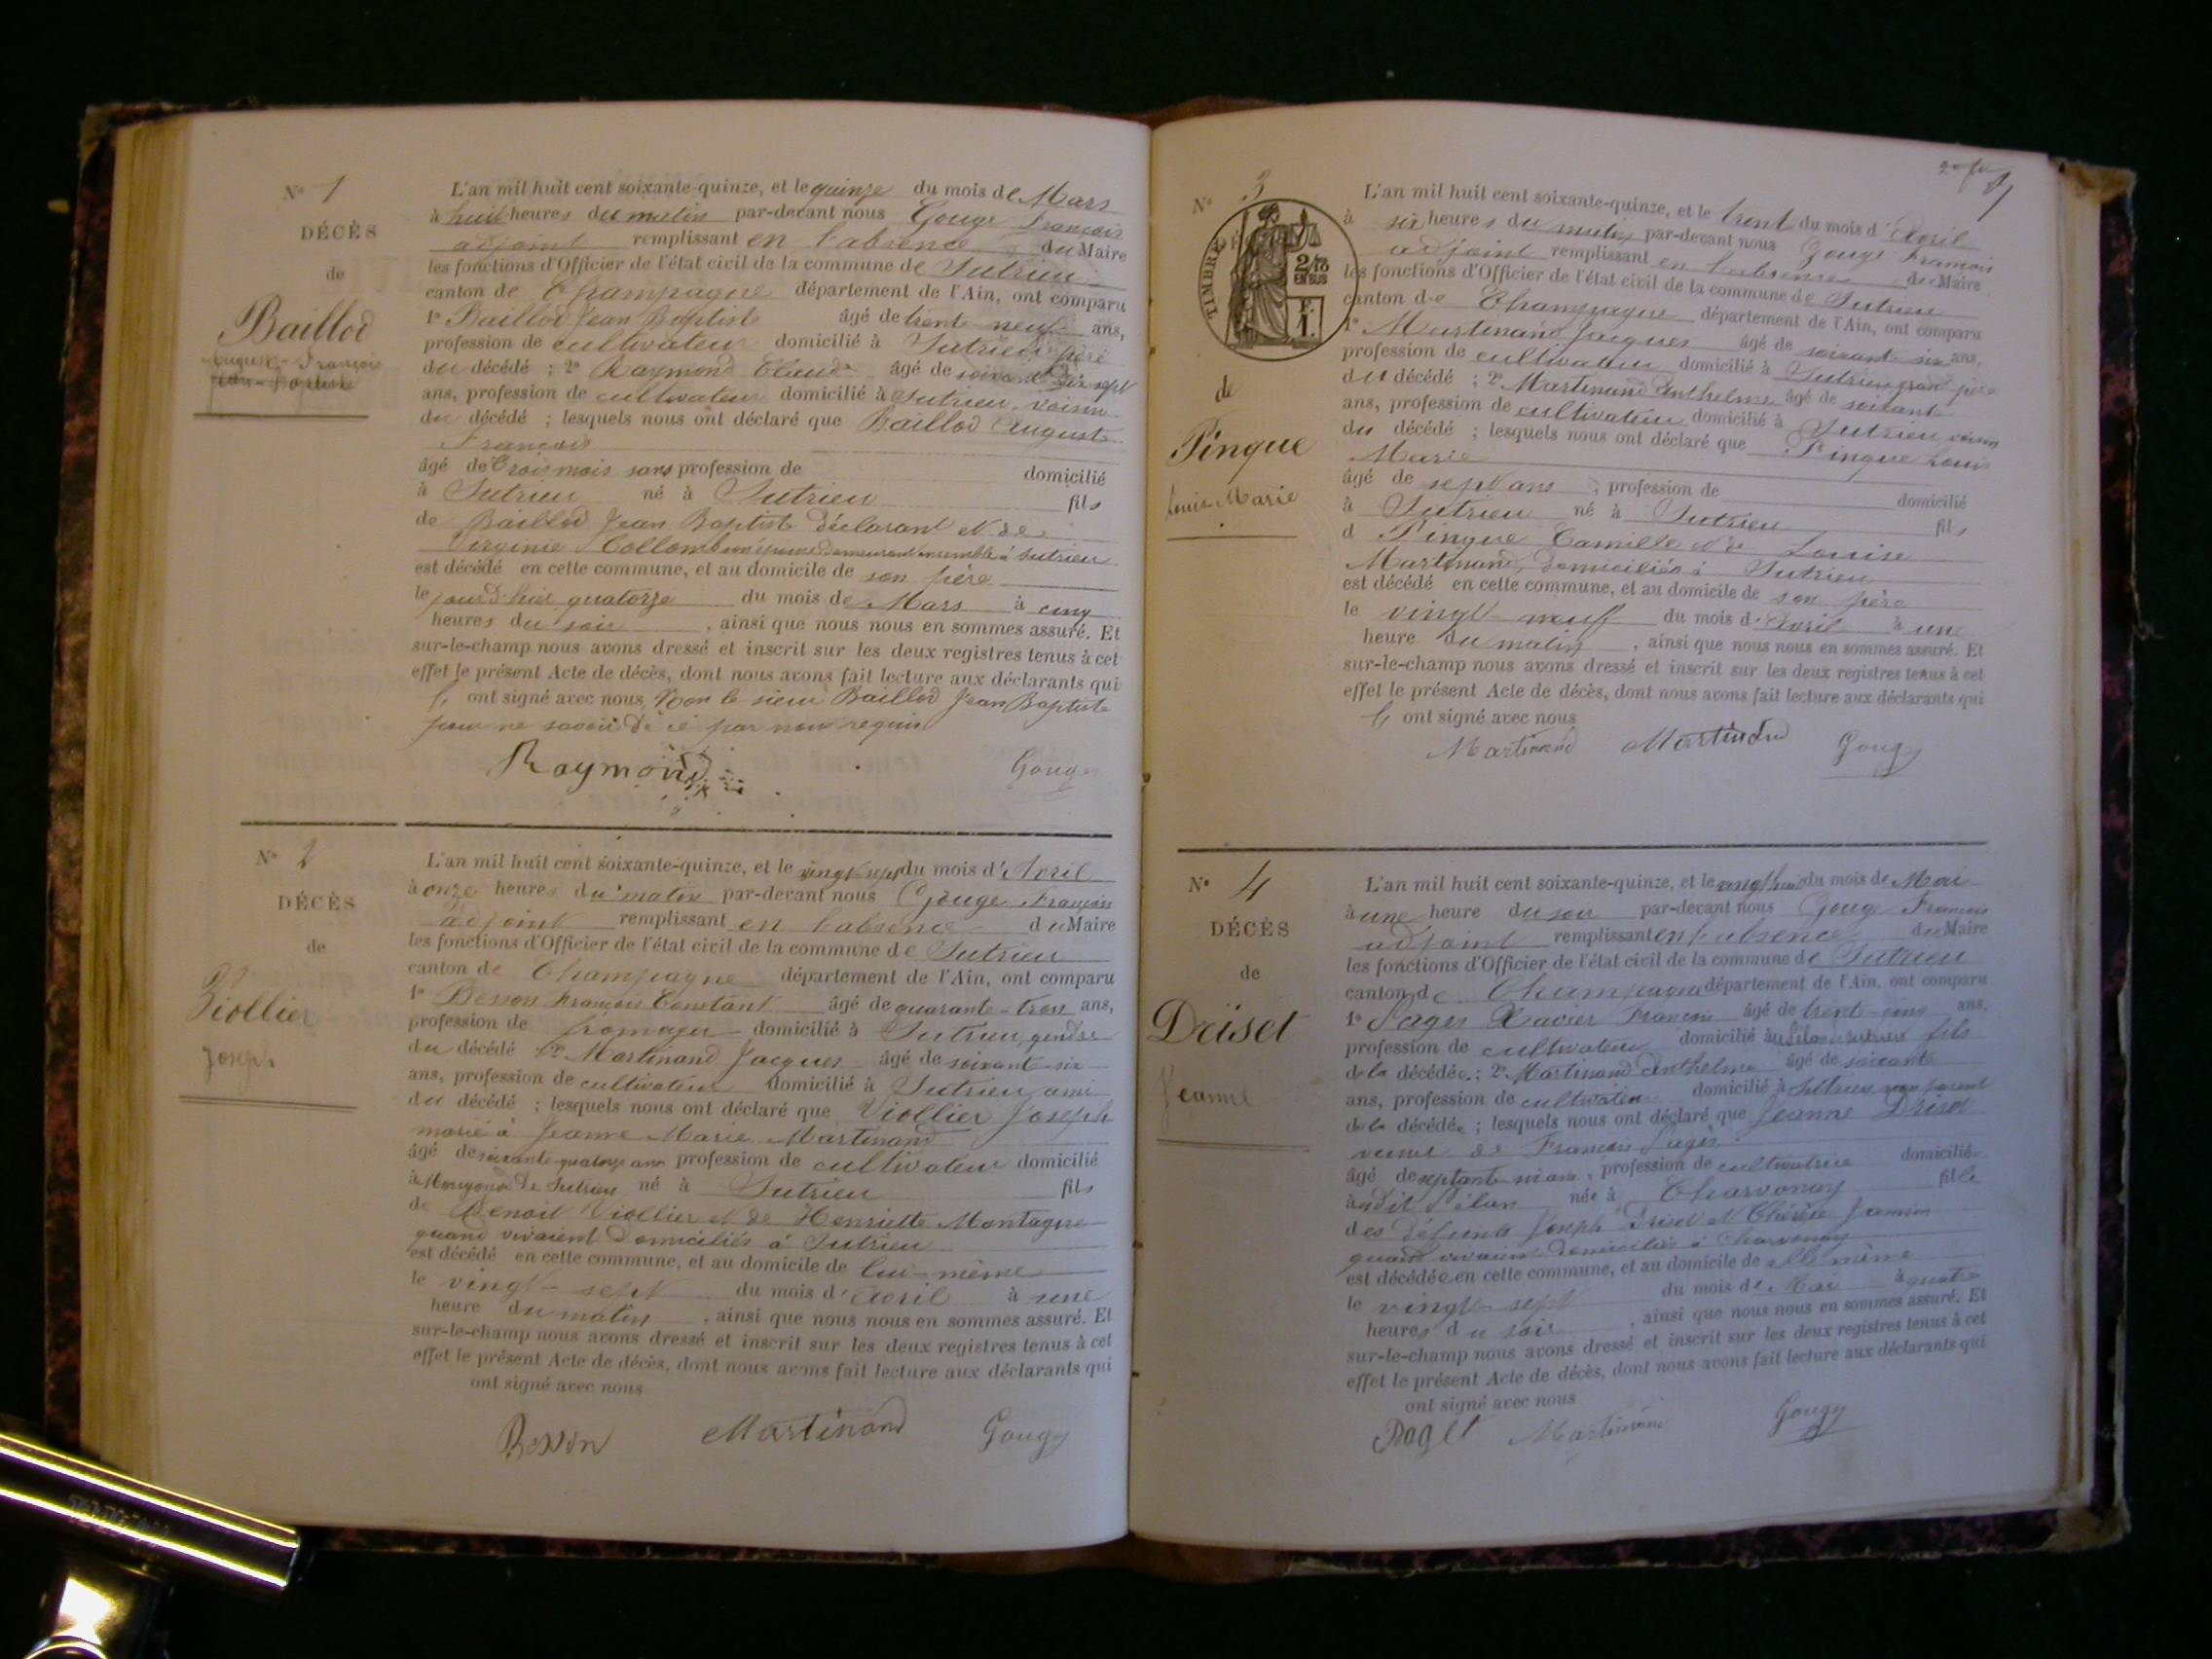 N° 1
DÉCÈS
de
Baillod
August-François
Jean-Baptiste
L'an mil huit cent soixante-quinze, et le quinze du mois de Mars
à huit heures du matin par-devant nous Gouge François
adjoint remplissant en l'absence du Maire
les fonctions d'Officier de l'état civil de la commune de Sutrieu
canton de Champagne département de l'Ain, ont comparu
1° Baillod Jean Baptiste âgé de trent neuf ans,
profession de cultivateur domicilié à Sutrieu père
du décédé ; 2° Raymond Claude âgé de soixante dix sept
ans, profession de cultivateur domicilié à Sutrieu, voisin
du décédé ; lesquels nous ont déclaré que Baillod Auguste
François
âgé de Trois mois sans profession de domicilié
à Sutrieu né à Sutrieu fils
de Baillod Jean Baptiste déclarant et de
Virginie Collomb son épouse demeurant ensemble à Sutrieu
est décédé en cette commune, et au domicile de son père
le jour d'hier quatorze du mois de Mars à cinq
heures du soir , ainsi que nous nous en sommes assuré. Et
sur-le-champ nous avons dressé et inscrit sur les deux registres tenus à cet
effet le présent Acte de décès, dont nous avons fait lecture aux déclarants qui
ont signé avec nous, Non le sieur Baillod Jean Baptiste
pour ne savoir de ce par nous requis
Raymond Gougy
N° 2
DÉCÈS
de
Viollier
Joseph
L'an mil huit cent soixante-quinze, et le vingt sept du mois d'Avril
à onze heures du matin par-devant nous Gouge François
adjoint remplissant en l'absence du Maire
les fonctions d'Officier de l'état civil de la commune de Sutrieu
canton de Champagne département de l'Ain, ont comparu
1° Besson François Constant âgé de quarante-trois ans,
profession de fromager domicilié à Sutrieu, gendre
du décédé 2° Martinand Jacques âgé de soixante-six
ans, profession de cultivateur domicilié à Sutrieu, ami
du décédé ; lesquels nous ont déclaré que Viollier Joseph
marié à Jeanne Marie Martinand
âgé de soixante-quatorze ans profession de cultivateur domicilié
à de Sutrieu né à Sutrieu fils
de Benoit Viollier et de Henriette Montagne
quand vivaient domiciliés à Sutrieu
est décédé en cette commune, et au domicile de lui-même
le vingt-sept du mois d'Avril à une
heure du matin , ainsi que nous nous en sommes assuré. Et
sur-le-champ nous avons dressé et inscrit sur les deux registres tenus à cet
effet le présent Acte de décès, dont nous avons fait lecture aux déclarants qui
ont signé avec nous
Besson Martinand Gougy
N° 3
TIMBRE
2/10
EN SUS
F.
1.
de
Pingue
Louis-Marie
L'an mil huit cent soixante-quinze, et le trent du mois d'Avril
à six heures du matin par-devant nous Gouge François
adjoint remplissant en l'absence du Maire
les fonctions d'Officier de l'état civil de la commune de Sutrieu
canton de Champagne département de l'Ain, ont comparu
1° Martinand Jacques âgé de soixante six ans,
profession de cultivateur domicilié à Sutrieu grand père
du décédé ; 2° Martinand Anthelme âgé de soixante
ans, profession de cultivateur domicilié à Sutrieu voisin
du décédé ; lesquels nous ont déclaré que Pingue Louis
Marie
âgé de sept ans , profession de domicilié
à Sutrieu né à Sutrieu fils
d Pingue Camille et de Louise
Martinand, domiciliés à Sutrieu
est décédé en cette commune, et au domicile de son père
le vingt neuf du mois d'Avril à une
heure du matin , ainsi que nous nous en sommes assuré. Et
sur-le-champ nous avons dressé et inscrit sur les deux registres tenus à cet
effet le présent Acte de décès, dont nous avons fait lecture aux déclarants qui
ont signé avec nous
Martinand Martinand Gougy
N° 4
DÉCÈS
de
Driset
Jeanne
L'an mil huit cent soixante-quinze, et le vingt huit du mois de Mai
à une heure du soir par-devant nous Gouge François
adjoint remplissant en l'absence du Maire
les fonctions d'Officier de l'état civil de la commune de Sutrieu
canton de Champagne département de l'Ain, ont comparu
1° Pages Xavier François âgé de trente-cinq ans,
profession de cultivateur domicilié au fils
de la décédée ; 2° Martinand Anthelme âgé de soixante
ans, profession de cultivateur domicilié à Sutrieu non parent
de la décédée ; lesquels nous ont déclaré que Jeanne Driset
veuve de François Pages
âgé de septante , profession de cultivatrice domicilié
audit née à Charvonay fille
des défunts Joseph Driset et
quand vivaient domiciliés à Charvonay
est décédée en cette commune, et au domicile de elle même
le vingt-sept du mois de Mai à quatre
heures du soir , ainsi que nous nous en sommes assuré. Et
sur-le-champ nous avons dressé et inscrit sur les deux registres tenus à cet
effet le présent Acte de décès, dont nous avons fait lecture aux déclarants qui
ont signé avec nous
Paget Martinand Gougy